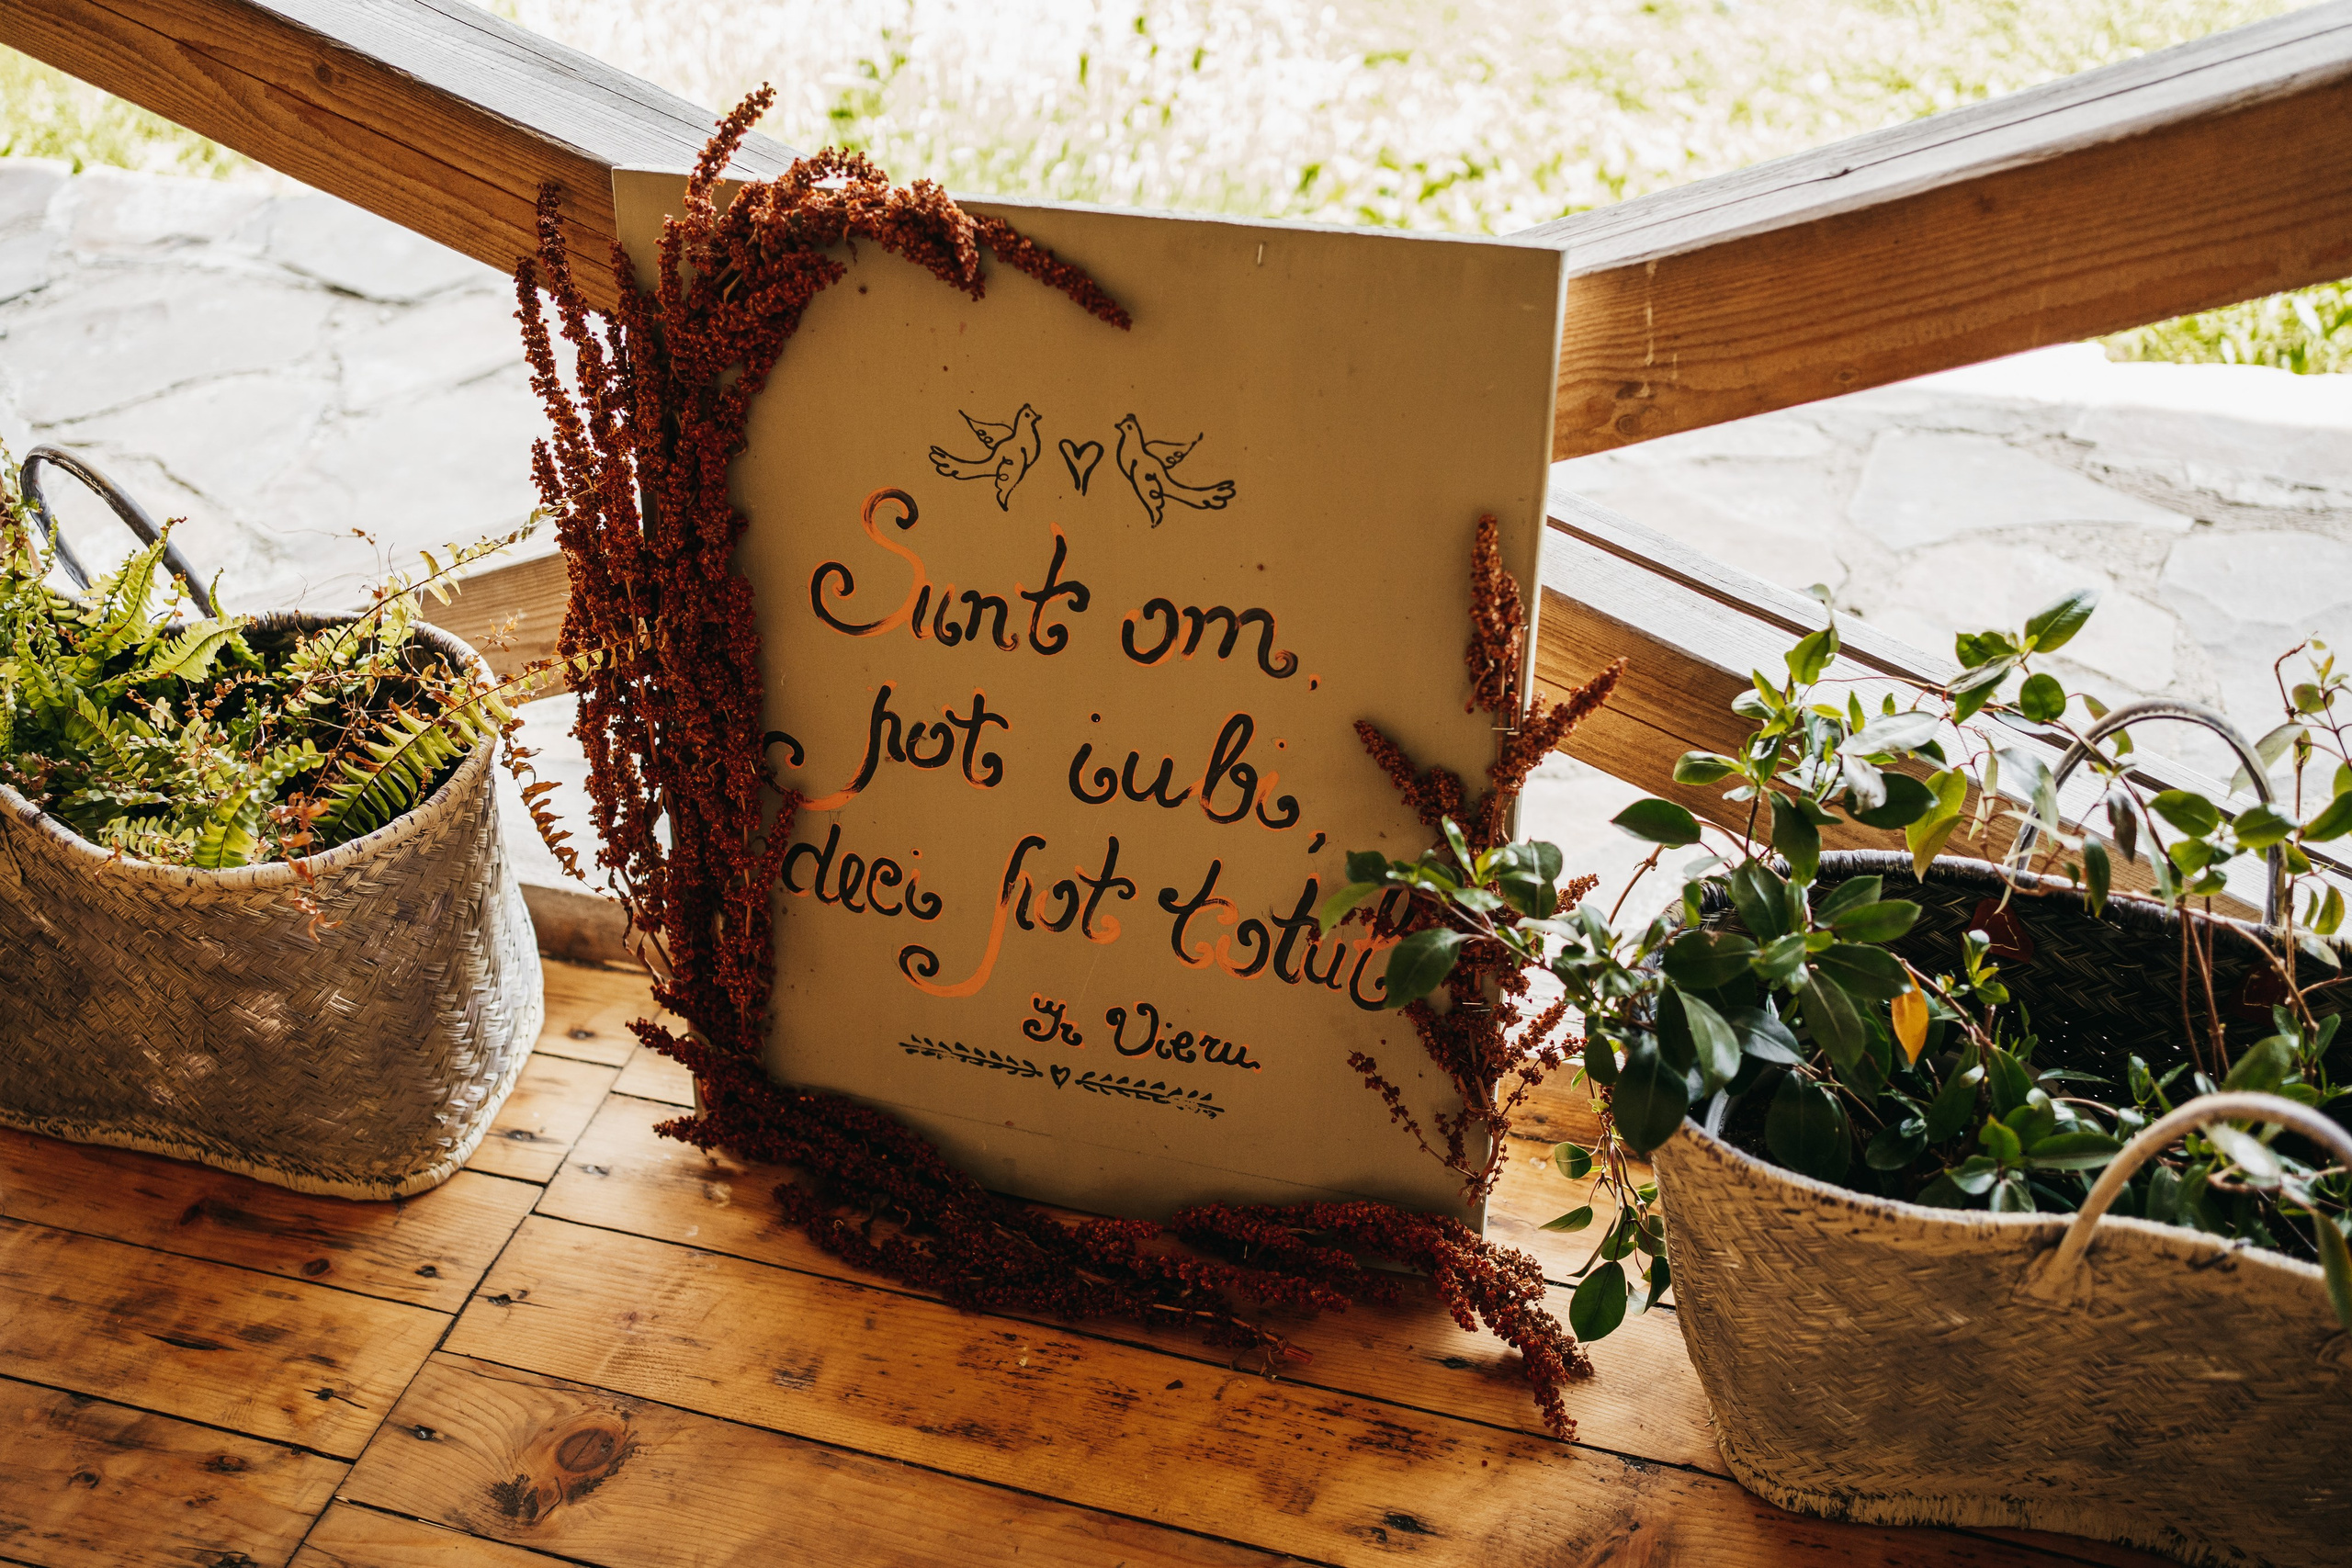 Sunt om,
pot iubi,
deci pot totul
Gr Vieru